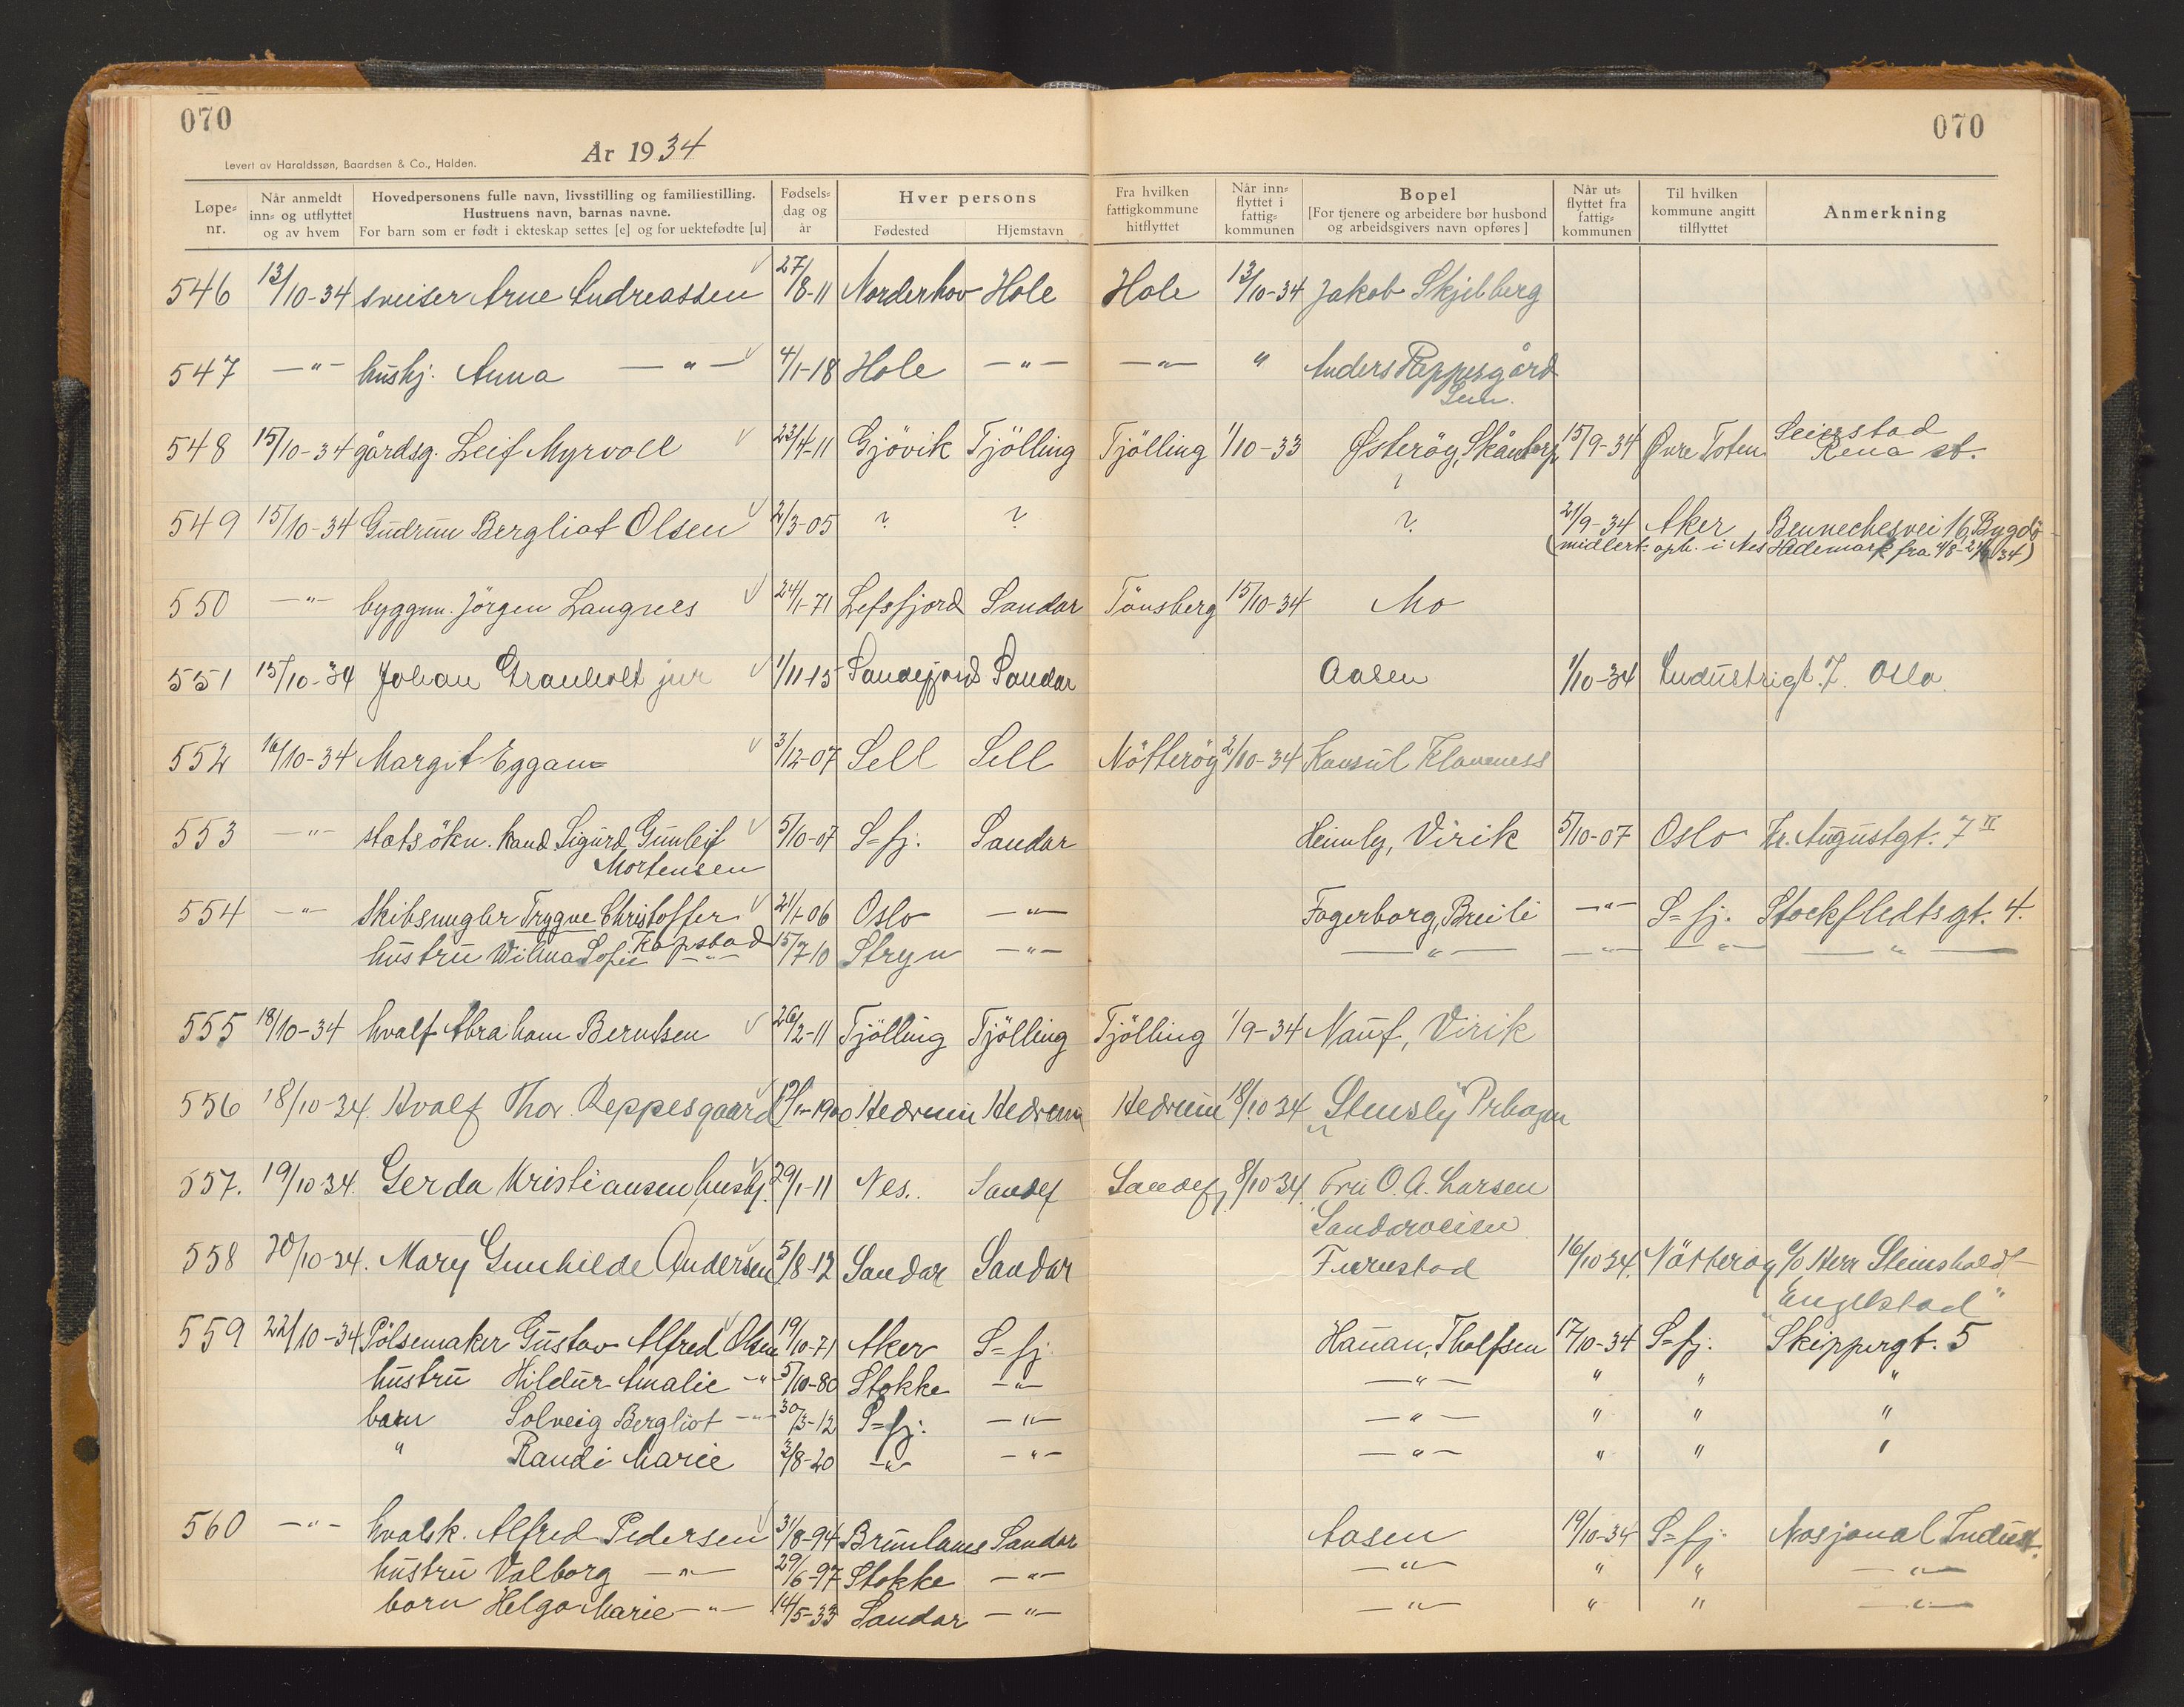 070
070
År 1934
Levert av Haraldssøn, Baardsen & Co., Halden.
Løpe-nr. Når anmeldt inn- og utflyttet og av hvem Hovedpersonens fulle navn, livsstilling og familiestilling. Hustruens navn, barnas navne. For barn som er født i ekteskap settes [e] og for uektefødte [u] Fødsels-dag og år Hver persons Fødested Hjemstavn Fra hvilken fattigkommune hitflyttet Når inn-flyttet i fattig-kommunen Bopel [For tjenere og arbeidere bør husbond og arbeidsgivers navn opføres] Når ut-flyttet fra fattig-kommunen Til hvilken kommune angitt tilflyttet Anmerkning
546 13/10-34 sveiser Arne Andreassen 27/8-11 Norderhov Hole Hole 13/10-34 Jakob Skjelberg
547 -"- hushj. Anna -"- 4/1-18 Hole -"- -"- " Anders Reppesgård
Sem.
548 15/10-34 gårdsg. Leif Myrvoll 23/4-11 Gjövik Tjölling Tjölling 1/10-33 Østeröy, 15/9-34 Øvre Toten Seierstad
Rena st.
549 15/10-34 Gudrun Bergliot Olsen 2/3-05 ? ? ? 21/9-34 Aker Bennechesvei 16, Bygdö
(midlert. oph. i Nes Hedemark fra 4/8-21/9 34)
550 -"- byggm. Jörgen Langnes 24/1-71 Lefsfjord Sandar Tönsberg 15/10-34 Mo
551 15/10-34 Johan Granholt jur 1/11-15 Sandefjord Sandar Aasen 1/10-34 Industrigt. 7. Oslo.
552 16/10-34 Margit Eggam 3/12-07 Sell Sell Nötteröy 2/10-34 Konsul Klaveness
553 -"- statsökn. kand. Sigurd Gunleif 5/10-07 S=fj. Sandar Heimly, Virik 5/10-07 Oslo Kr. Augustgt. 7 II
Mortensen
554 -"- skibsmegler Trygve Christoffer 21/1-06 Oslo -"- Fagerborg, Breili -"- S=fj. Stockfledtsgt. 4.
Kopstad
hustru Wilma Sofie -"- 15/7-10 Stryn -"- -"- -"- -"- -"-
555 18/10-34 hvalf. Abraham Berntsen 26/2-11 Tjölling Tjölling Tjölling 1/9-34 Nauf, Virik
556 18/10-34. Hvalf Thor Reppesgaard Hedrum Hedrum Hedrum 18/10 34 "Stensly"
557. 19/10-34. Gerda Kristiansen hushj. 29/1-11 Nes. Sandef Sandefj 8/10-34. Fru O. A. Larsen
Sandarveien
558 20/10-34. Mary Gunhilde Andersen 5/8-12 Sandar Sandar Furustad 16/10 34. Nötteröy c/o Herr Steinsholt
"Engelstad"
559 22/10-34 Pölsemaker Gustav Alfred Olsen 19/10-71 Aker S=fj. Hauan, Tholfsen 17/10-34 S=fj. Skippergt. 5
hustru Hildur Amalie -"- 5/10-80 Stokke -"- -"- " " "
barn Solveig Bergliot -"- 30/3-12 S=fj. -"- -"- " " "
" Randi Marie 3/8-20 -"- -"- -"- " " "
560 -"- hvalsk. Alfred Pedersen 31/8-94 Brunlanes Sandar Aasen 19/10-34 S=fj. Nasjonal Indust.
hustru Valborg -"- 29/6-97 Stokke -"- -"- " " -"-
barn Helga Marie -"- 14/5-33 Sandar -"- -"- " " -"-